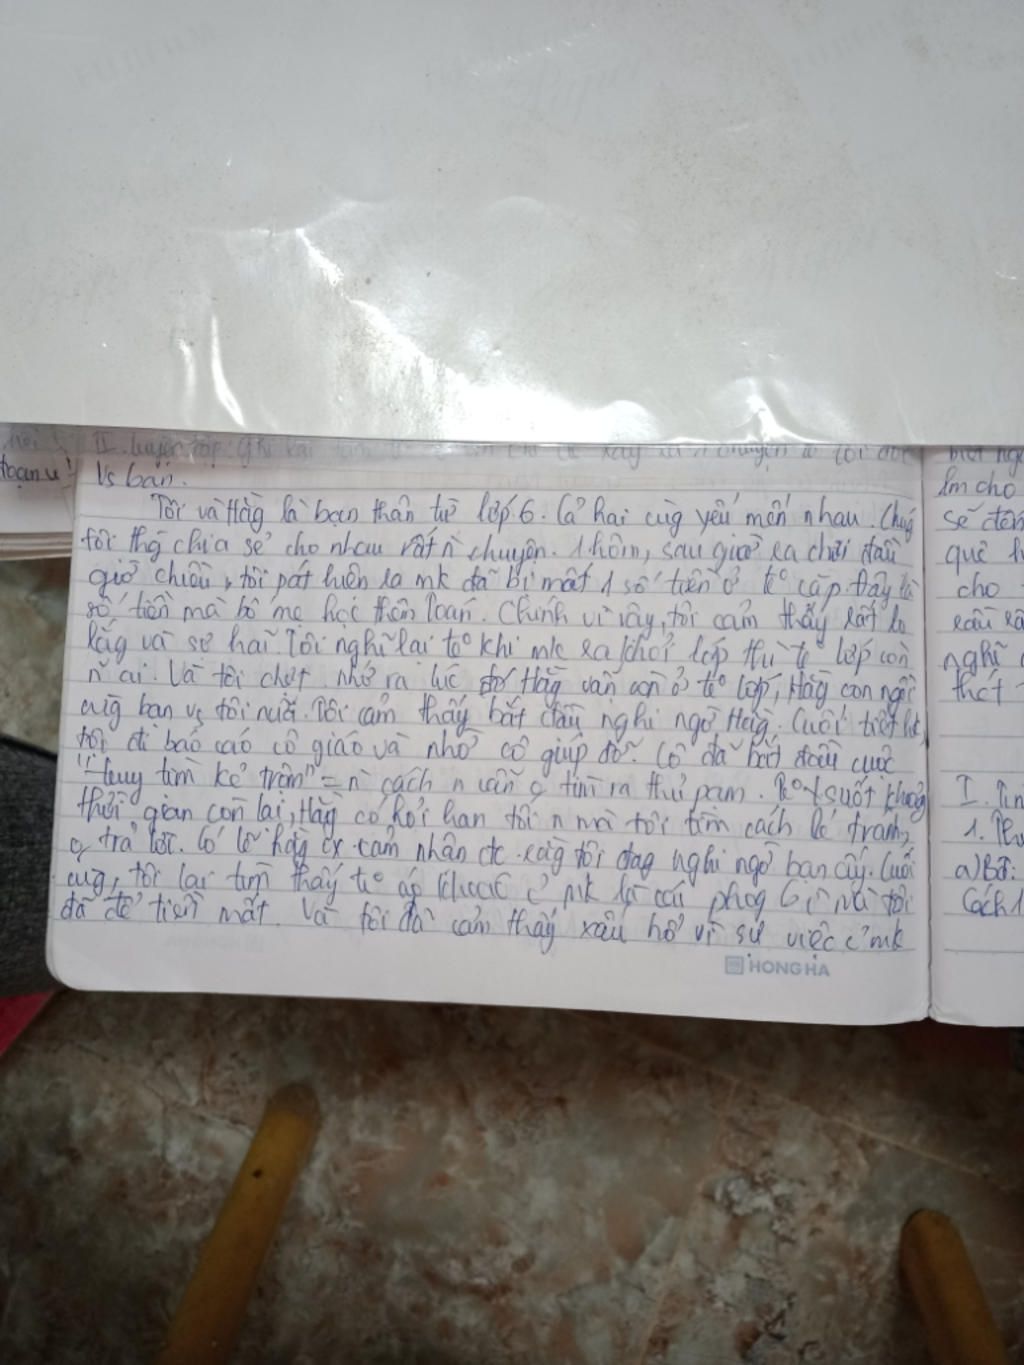 II. Luyện tập: Ghi lại
toạn u!
Vs bạn.
Tôi và Hằg là bạn thân từ lớp 6. Cả hai cùg yêu mến nhau. Chúg
tôi thg chia sẻ cho nhau rất n̄ chuyện. 1 hôm, sau giờ ra chơi đầu
giờ chiều, tôi pát hiện ra mk đã bị mất 1 số tiền ở tº cặp. Đây là
số tiền mà bố mẹ học thêm Toán. Chính vì vậy, tôi cảm thấy rất lo
lắg và sợ hãi. Tôi nghĩ lại tº khi mk ra chơi lớp thì tº lớp còn
n̄ ai. Và tôi chợt nhớ ra lúc đó Hằg vẫn còn ở tº lớp, Hằg còn ngồi
cùg bàn vs tôi nữa. Tôi cảm thấy bắt đầu nghi ngờ Hằg. Cuối tiết
tôi đi báo cáo cô giáo và nhờ cô giúp đỡ. Cô đã bắt đầu cuộc
"truy tìm kẻ trộm" = n̄ cách n vẫn tìm ra thủ pạm. suốt khoảg
thời gian còn lại, Hằg có hỏi han tôi n mà tôi tìm cách lé tránh,
trả lời. Có lẽ hằg cx cảm nhận đc rằg tôi đag nghi ngờ bạn ấy. Cuối
cùg, tôi lại tìm thấy tº áp mk là cái phog bì mà tôi
đã để tiền mất. Và tôi đã cảm thấy xấu hổ vì sự việc c̉ mk
HONG HA
biết
lm cho
sẽ đến
quê
cho
nghĩ
thct
I.
1.
a) Bđ:
Cách 1